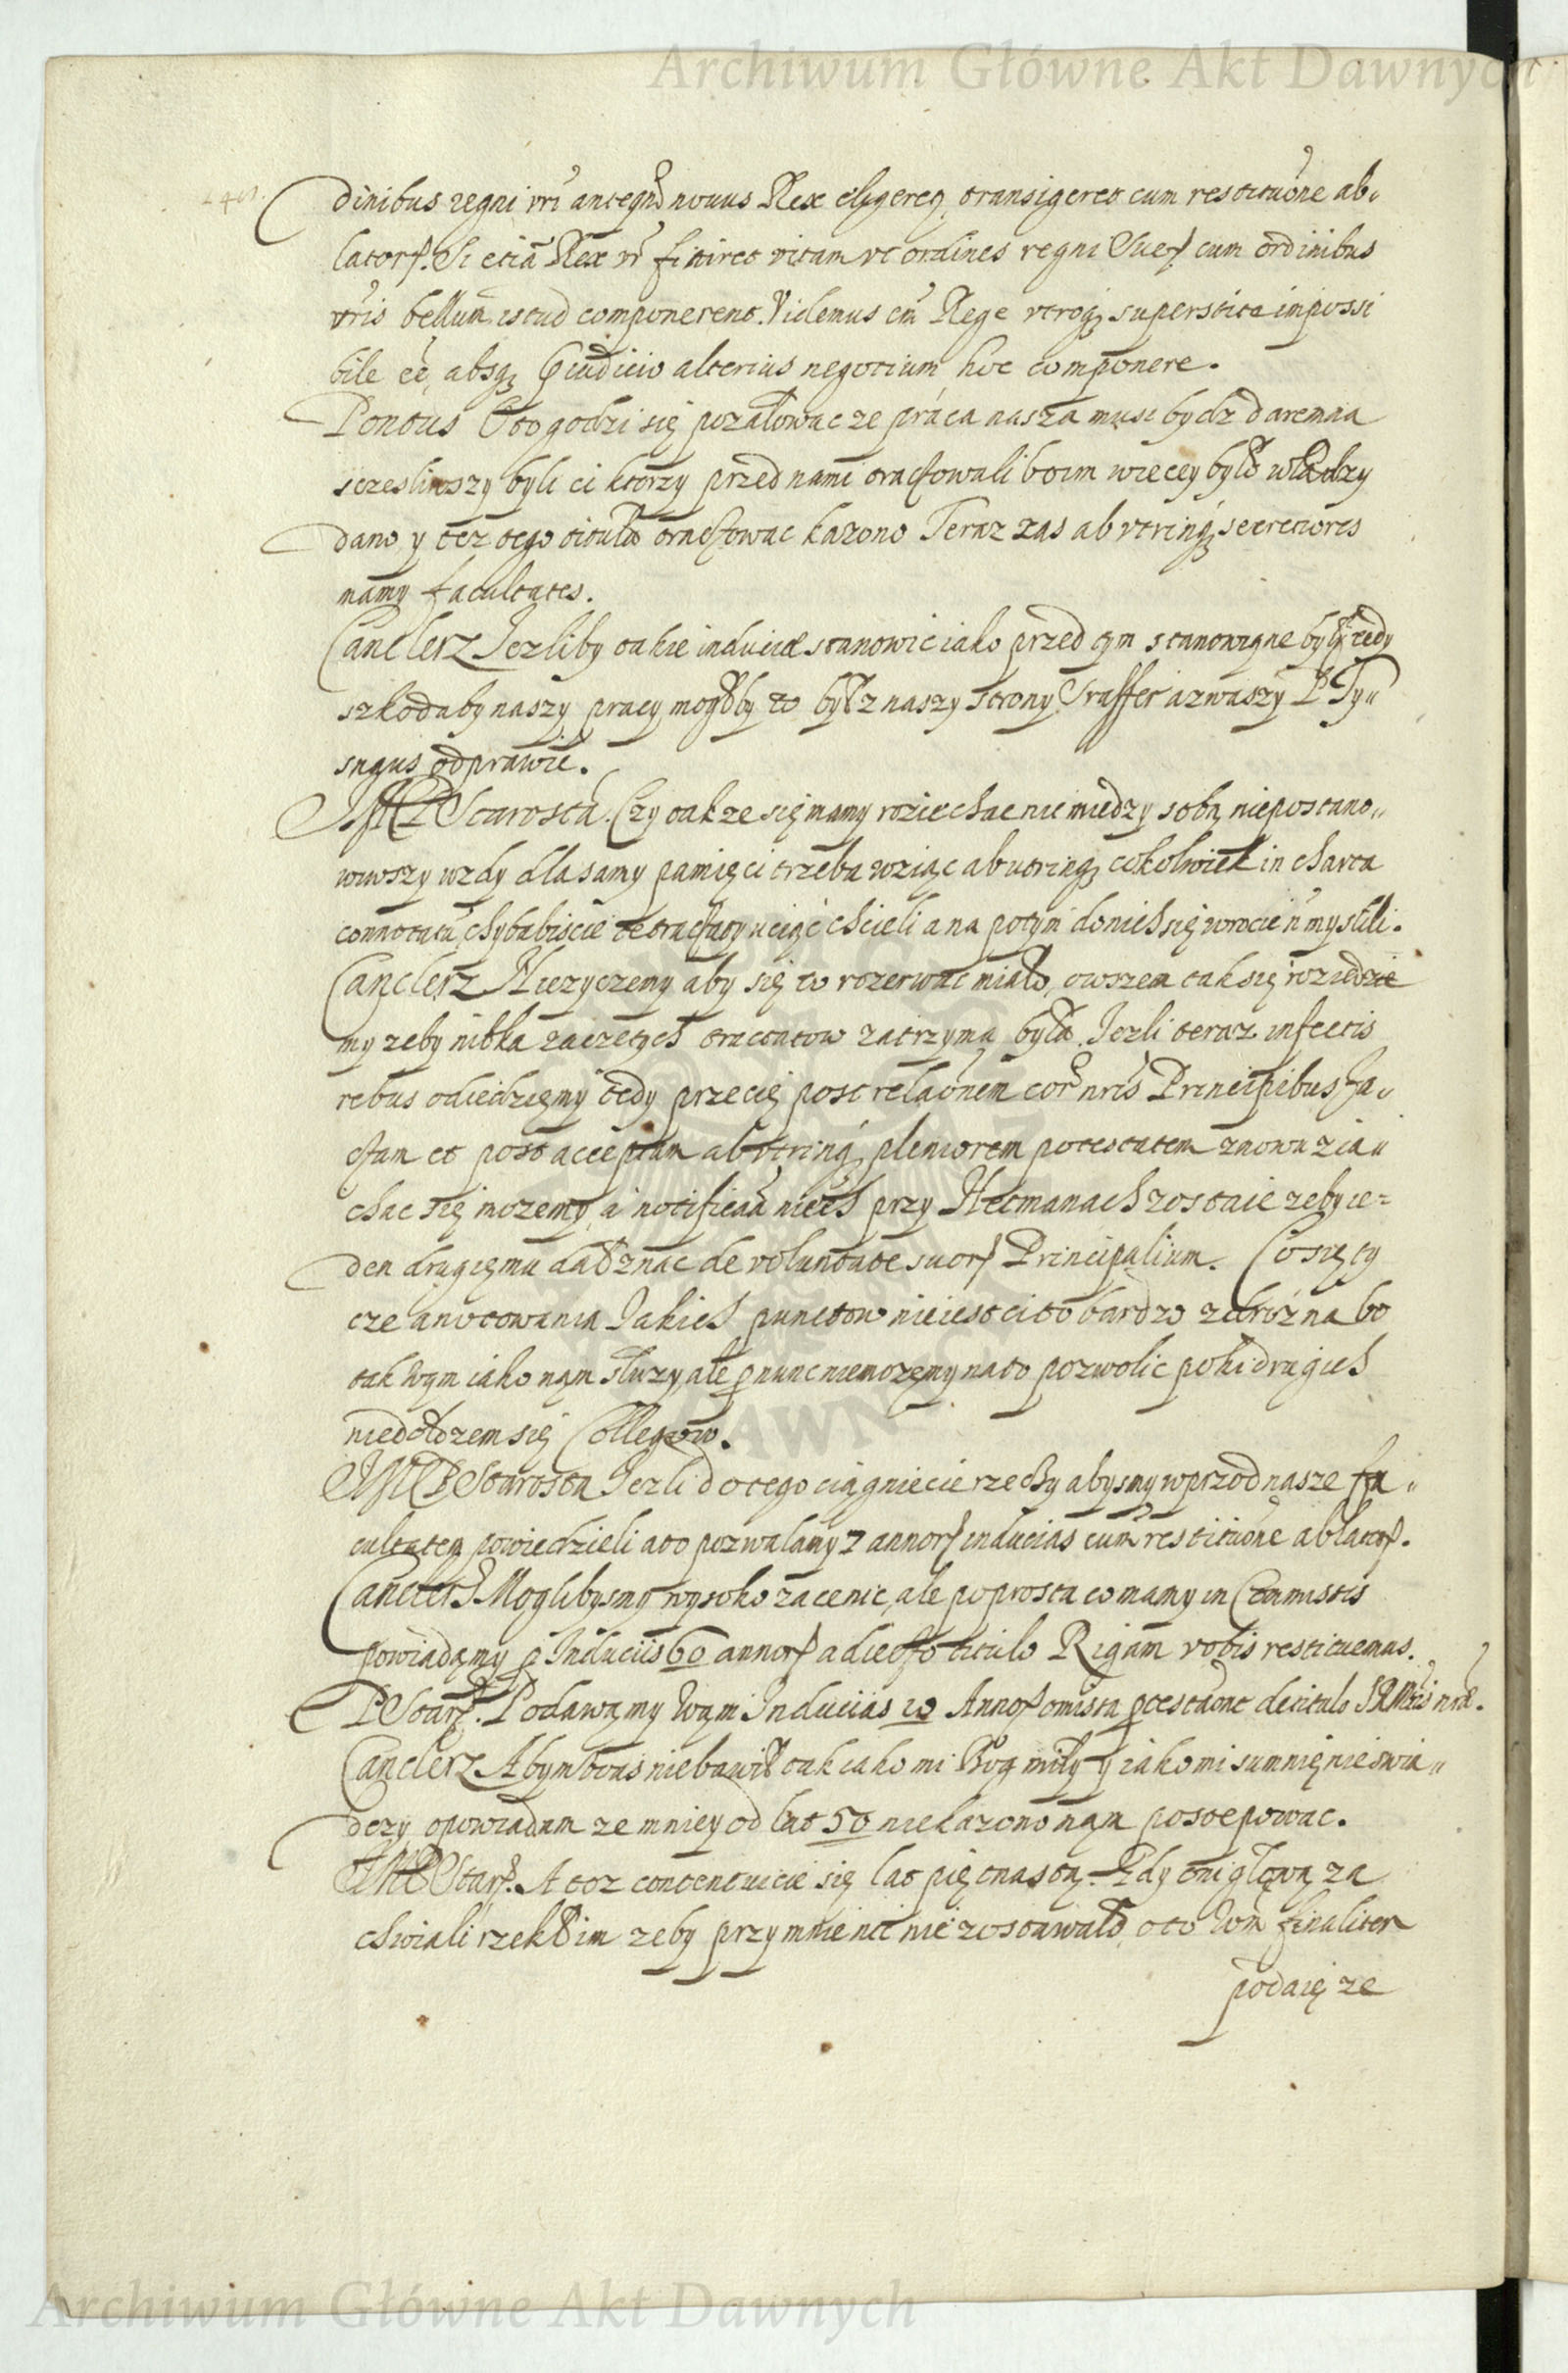 Archiwum Główne Akt Dawnych
dinibus regni vri anteqm novus Rex eligeretq transigeret cum restitutione ab„
lator. Si etia Rex vr finiret vitam vt ordines regni Suet cum ordinibus
vris bellum istud componerent. Videmus em Rege vtroqz superstite inpossi
bile ee absqz Pjudicio alterius negotium hoc componere.
Pontus Oto godzi się pozałowac ze práca nasza musi bydz daremna
sczesliwszy byli ci ktorzy przed nami tractowali bo im wiecey było władzy
dano y tez tego titułu tractowac kazono Teraz zas ab vtrinqz secretiores
mamy facultates.
Canclerz Jezliby takie induciae stanowic iako przed tym stanowione były tedy
szkodaby naszy pracy mogłby to był z naszy strony Traffer a z waszy P Ty„
sngus odprawić.
JMP Starosta. Czy takze się mamy roziechac nic miedzy sobą nie postano„
wiwszy wzdy dla samy pamięci trzeba wziąc ab utrinqz cokolwiek in charta
connotatu, chybabiscie te tractaty uciąć chcieli a na potym do nich się wrocić nie myslili.
Canclerz Nie zyczemy aby się to rozerwac miało, owszem tak się roziedzie
my zeby nitka zaczetych tractatow zatrzyma była. Jezli teraz infectis
rebus odiedziemy tedy przecię post relationem cor nris Principibus fa„
ctam et post acceptam ab vtrinqz pleniorem potestatem znowu zia„
chac się mozemy, a notificatia niech przy Hetmanach zostaie zeby ie=
den drugiemu dał znac de voluntate suor Principalium. Co się ty
cze anotowania Jakich punctow nie iest ci to bardzo zdrożna bo
tak wąm iako nąm służy, ale p nunc niemozemy na to pozwolic poki drugich
niedołozem się Collegow.
JMP Starosta Jezli do tego ciągniecie rzeczy abysmy wprzod nasze fa„
cultatem powiedzieli a to pozwalamy 7 annor inducias cum restitutione ablator.
Canclerz Moglibysmy wysoko zacenic, ale po prostu co mamy in Commissis
powiadamy p Induciis 60 annor adiecto titulo Rigam vobis restituemus.
P Star. Podawamy wąm Inducias 10 Annor omissa ptestatione de titulo JKMci nro.
Canclerz Abym was nie bawił tak iako mi Bog miły y iako mi sumnięnie swia„
dczy opowiadam ze mniey od lat 50 nie kazono nąm postepowac.
JMP Star. A toz contentuicie się lat pięcnastą. Gdy oni głową za
chwiali rzekł im zeby przy mnie nic nie zostawało, oto wm finaliter
podaię ze
Archiwum Główne Akt Dawnych